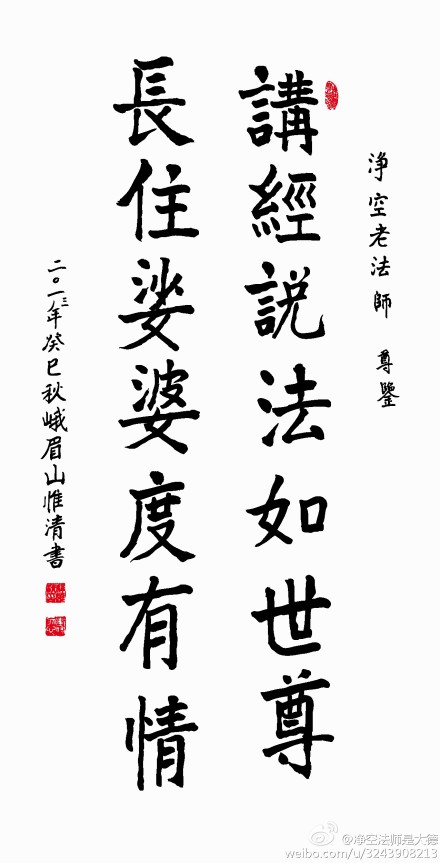 淨空老法師 尊鑒
講經説法如世尊
長住娑婆度有情
二〇一三年癸巳秋峨眉山惟清書
@净空法师是大德
weibo.com/u/3243908213